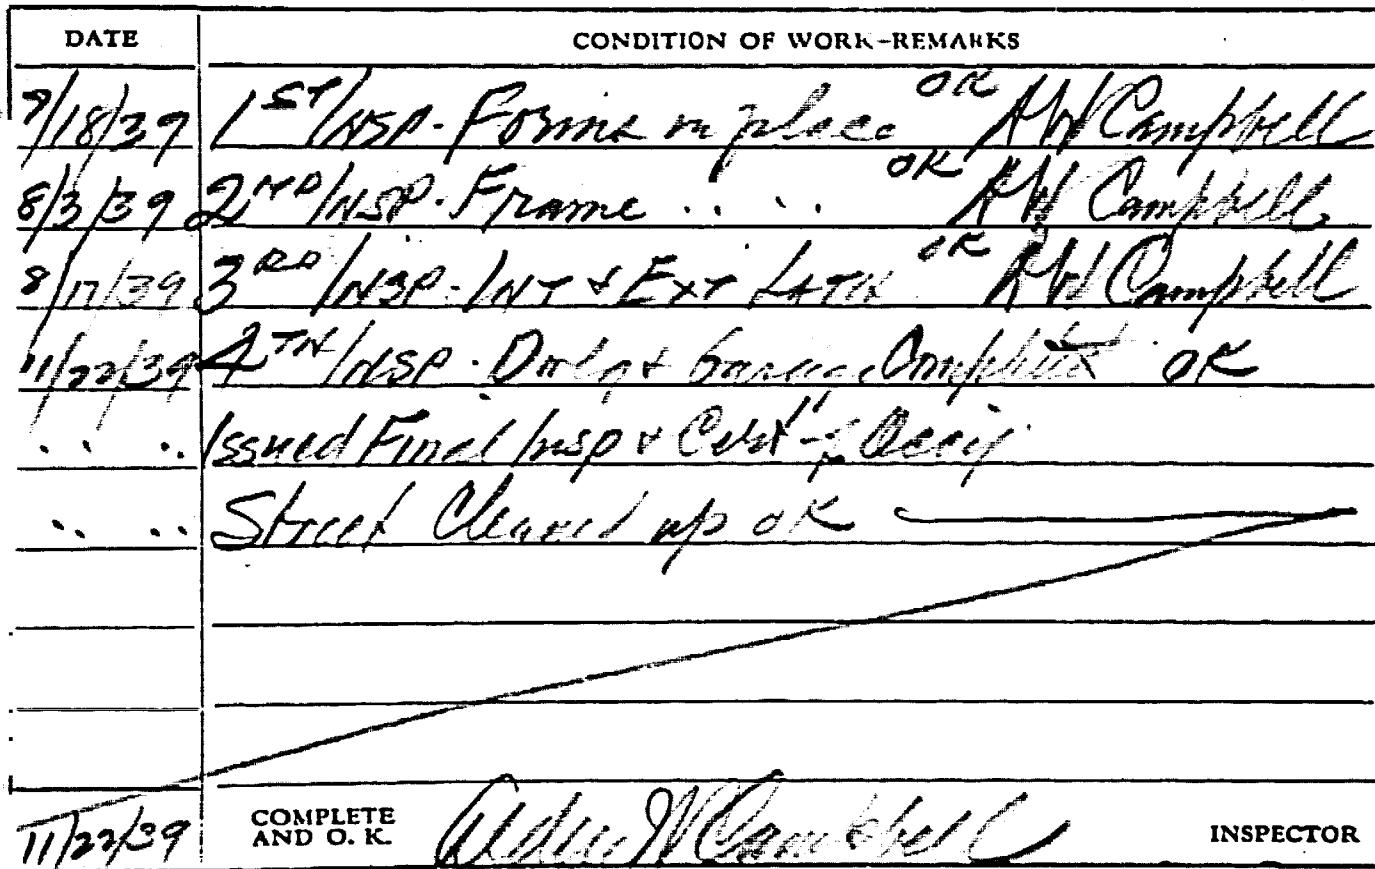 DATE CONDITION OF WORK-REMARKS
7/18/39 1ST INSP. Forms in place OK AW Campbell
8/3/39 2ND INSP. Frame " " OK AW Campbell
8/17/39 3RD INSP. INT & EXT LATH OK AW Campbell
11/22/39 4TH INSP. Dwlg & Garage Completed OK
" " Issued Final Insp & Cert of Occ'y
" " Street Cleaned up OK
11/22/39 COMPLETE AND O. K. W Campbell INSPECTOR